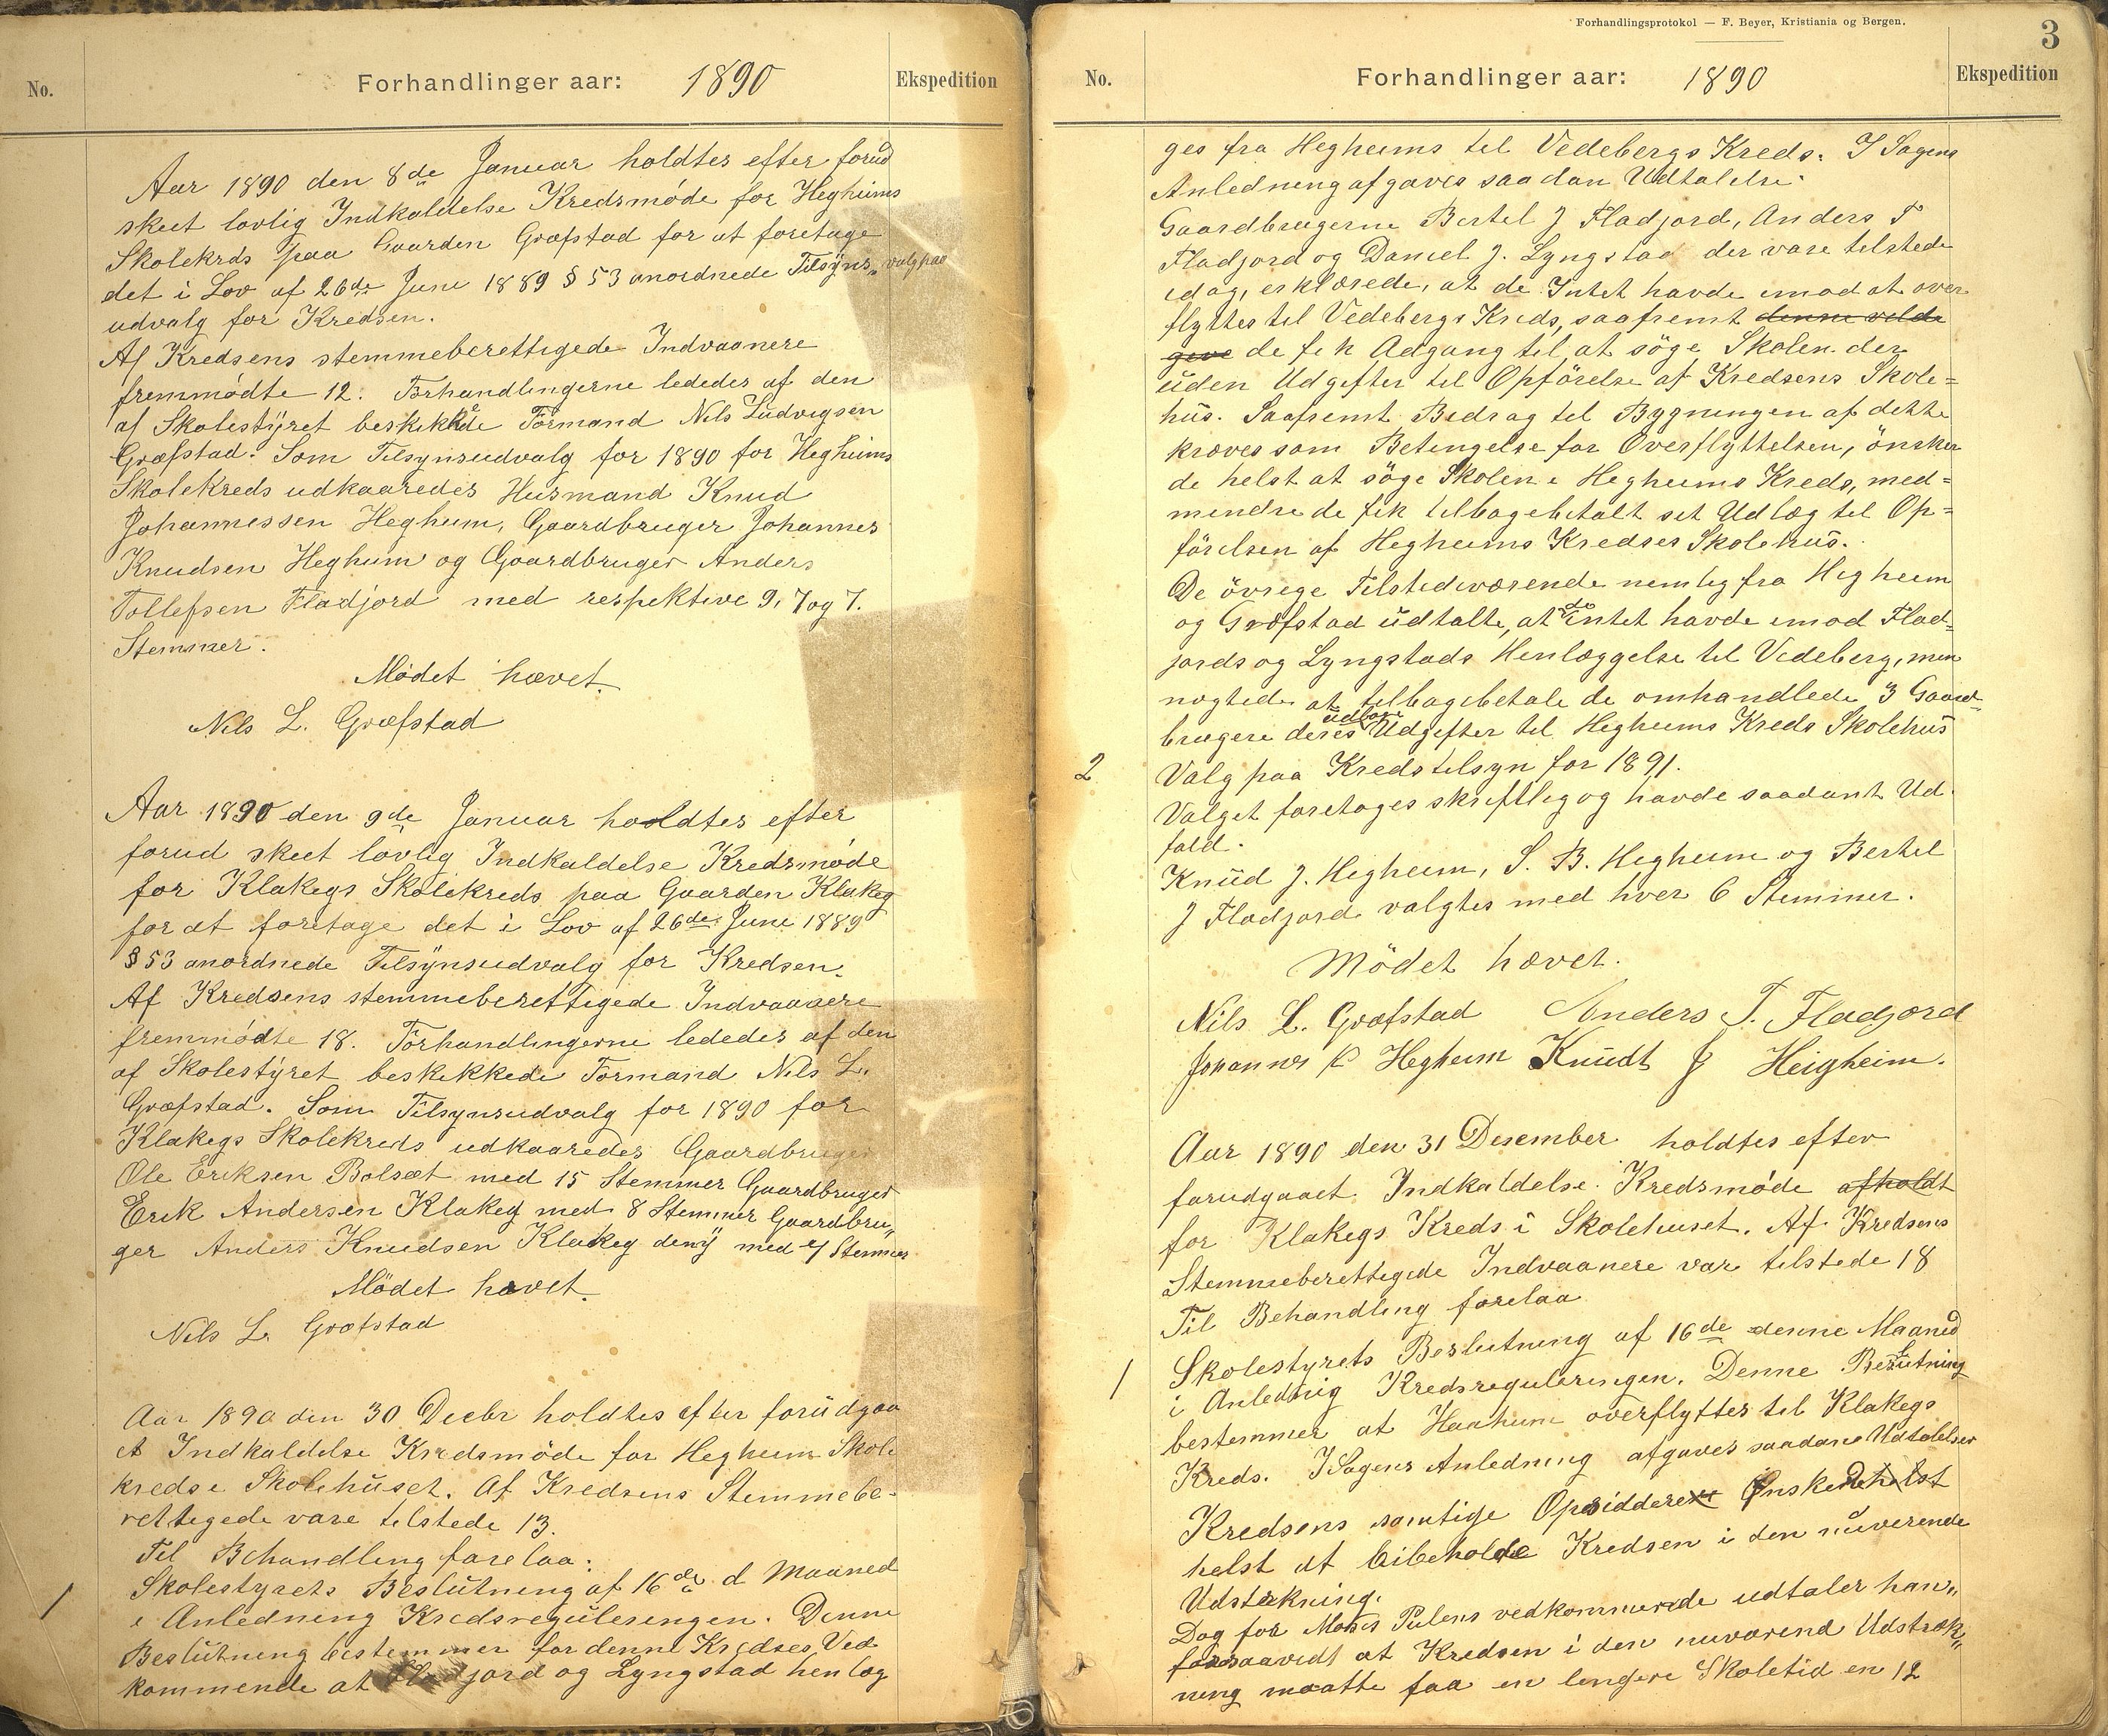 No.
Forhandlinger aar: 1890
Ekspedition
Aar 1890 den 8de Januar holdtes efter forud
skeet lovlig Indkaldelse Kredsmøde for Hegheims
Skolekrds paa Gaarden Græfstad for at foretage
det i Lov af 26de Juni 1889 § 53 anordnede Tilsyns„ valg paa
udvalg for Kredsen.
Af Kredsens stemmeberettigede Indvaanere
fremmødte 12. Forhandlingerne lededes af den
af Skolestyret beskikkede Formand Nils Ludvigsen
Græfstad. Som Tilsynsudvalg for 1890 for Hegheims
Skolekreds udkaaredes Husmand Knud
Johannessen Heghum, Gaardbruger Johannes
Knudsen Heghum og Gaardbruger Anders
Tollefsen Fladjord med respektive 9, 7 og 7.
Stemmer.
Mødet hævet.
Nils L. Græfstad
Aar 1890 den 9de Januar hooldtes efter
forud skeet lovlig Indkaldelse Kredsmøde
for Klakegs Skolekreds paa Gaarden Klakeg
for at foretage det i Lov af 26de Juni 1889
§ 53 anordnede Tilsynsudvalg for Kredsen.
Af Kredsens stemmeberettigede Indvaanere
fremmødte 18. Forhandlingerne lededes af den
af Skolestyret beskikkede Formand Nils L.
Græfstad. Som Tilsynsudvalg for 1890 for
Klakegs Skolekreds udkaaredes Gaardbruger
Ole Eriksen Bolsæt med 15 Stemmer Gaardbruger
Erik Andersen Klakeg med 8 Stemmer Gaardbru„
ger Anders Knudsen Klakeg med 7 Stemmer
Mödet hævet.
Nils L. Græfstad
Aar 1890 den 30 Decbr holdtes efter forüdgaa
et Indkaldelse Kredsmöde for Hegheim Skole
kreds i Skolehüset. Af Kredsens Stemmebe-
rettigede vare tilstede 13.
Til Behandling forelaa:
1 Skolestyrets Beslütning af 16de d Maaned
i Anledning Kredsreguleringen. Denne
Beslütning bestemmer for denne Kredses Ved
kommende at Fladjord og Lyngstad henlæg
Forhandlingsprotokol — F. Beyer, Kristiania og Bergen.
3
No.
Forhandlinger aar: 1890
Ekspedition
ges fra Hegheims til Vedebergs Kreds. I Sagens
Anledning afgaves saadan Udtalelse.
Gaardbrugerne Bertel J Fladjord, Anders T
Fladjord og Daniel J. Lyngstad der vare tilstede
idag, erklærede, at de Intet havde imod at over
flyttes til Vedebergs Kreds, saafremt denne vilde
give de fik Adgang til at söge Skolen der
üden Udgifter til Opförelse af Kredsens Skole=
hüs. Saafremt Bidrag til Bygningen af dette
kræves som Betingelse for Overflyttelsen, önsker
de helst at söge Skolen i Hegheims Kreds, med=
mindre de fik tilbagebetalt sit Udlæg til Op=
förelsen af Hegheims Kredses Skolehüs.
De övrige Tilstedeværende nemlig fra Hegheim
og Græfstad üdtalte, at de intet havde imod Flad=
jords og Lyngstads Henlæggelse til Vedeberg, men
nægtede at tilbagebetale de omhandlede 3 Gaard=
brugere deres üdlæg Udgifter til Hegheims Kreds Skolehüs
2 Valg paa Kredstilsyn for 1891.
Valget foretoges skriftlig og havde saadant Ud
fald.
Knüd J. Hegheim, S. B. Hegheim og Bertel
J Fladjord valgtes med hver 6 Stemmer.
Mödet hævet.
Nils L. Græfstad Anders T. Fladjord
Johannes K Hegheim Knüdt J Heigheim.
Aar 1890 den 31 Desember holdtes efter
forudgaaet Indkaldelse Kredsmøde afholdt
for Klakegs Kreds i Skolehuset. Af Kredsens
Stemmeberettigede Indvaanere var tilstede 18
Til Behandling forelaa
1 Skolestyrets Beslutning af 16de denne Maaned
i Anledning Kredsreguleringen. Denne Beslutning
bestemmer at Haahum overflyttes til Klakegs
Kreds. I Sagens Anledning afgaves saadane Udtalelser
Kredsens samtige Opsiddere Ønskede helst
helst at bibeholde Kredsen i den nuverende
Udstrækning.
Dog for Moses Pulens vedkommende udtaler han„
forsaavidt at Kredsen i den nuværend Udstræk„
ning maatte faa en lengere Skoletid en 12